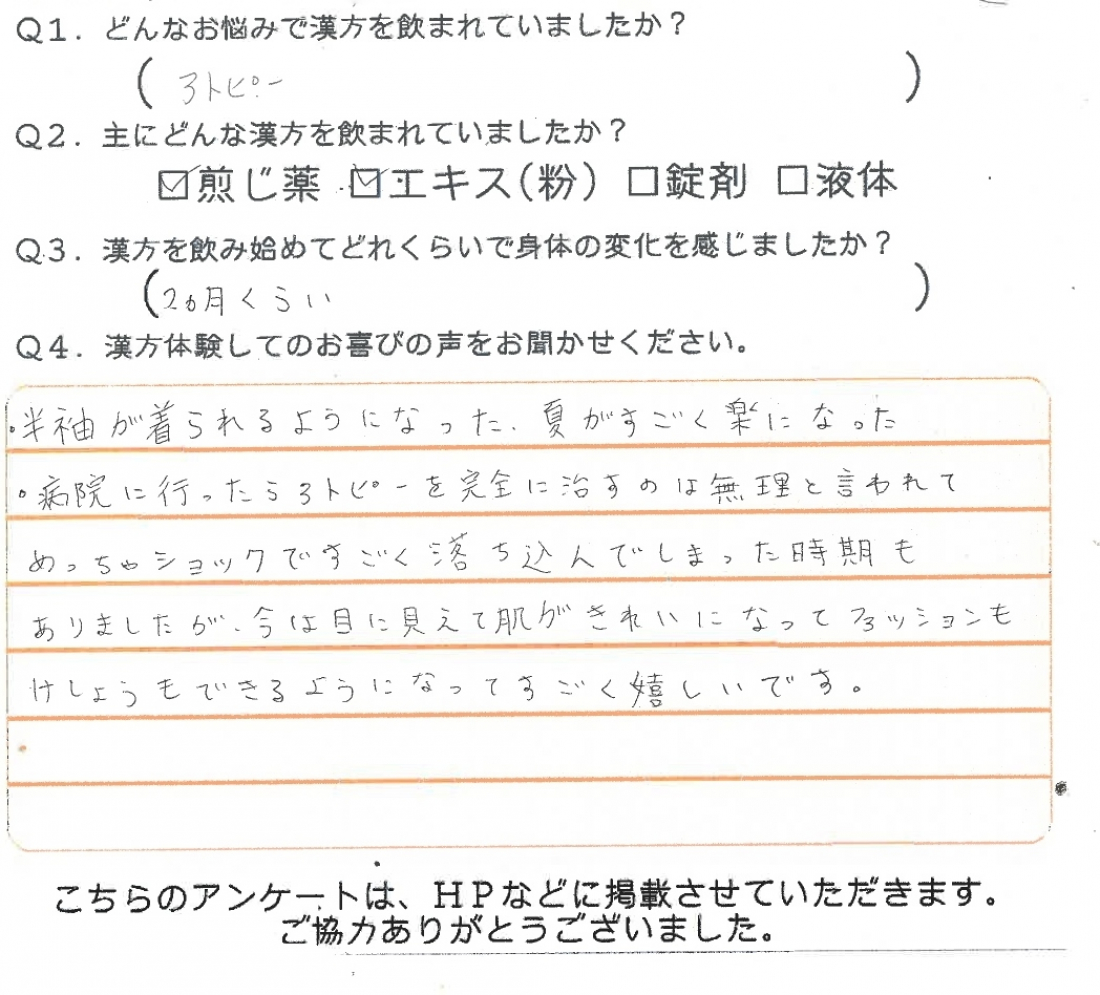 Q1. どんなお悩みで漢方を飲まれていましたか？
(アトピー)
Q2. 主にどんな漢方を飲まれていましたか？
☑煎じ薬 ☑エキス(粉) □錠剤 □液体
Q3. 漢方を飲み始めてどれくらいで身体の変化を感じましたか？
(2ヵ月くらい)
Q4. 漢方体験してのお喜びの声をお聞かせください。
・半袖が着られるようになった、夏がすごく楽になった
・病院に行ったらアトピーを完全に治すのは無理と言われて
めっちゃショックですごく落ち込んでしまった時期も
ありましたが、今は目に見えて肌がきれいになってファッションも
けしょうもできるようになってすごく嬉しいです。
こちらのアンケートは、HPなどに掲載させていただきます。
ご協力ありがとうございました。